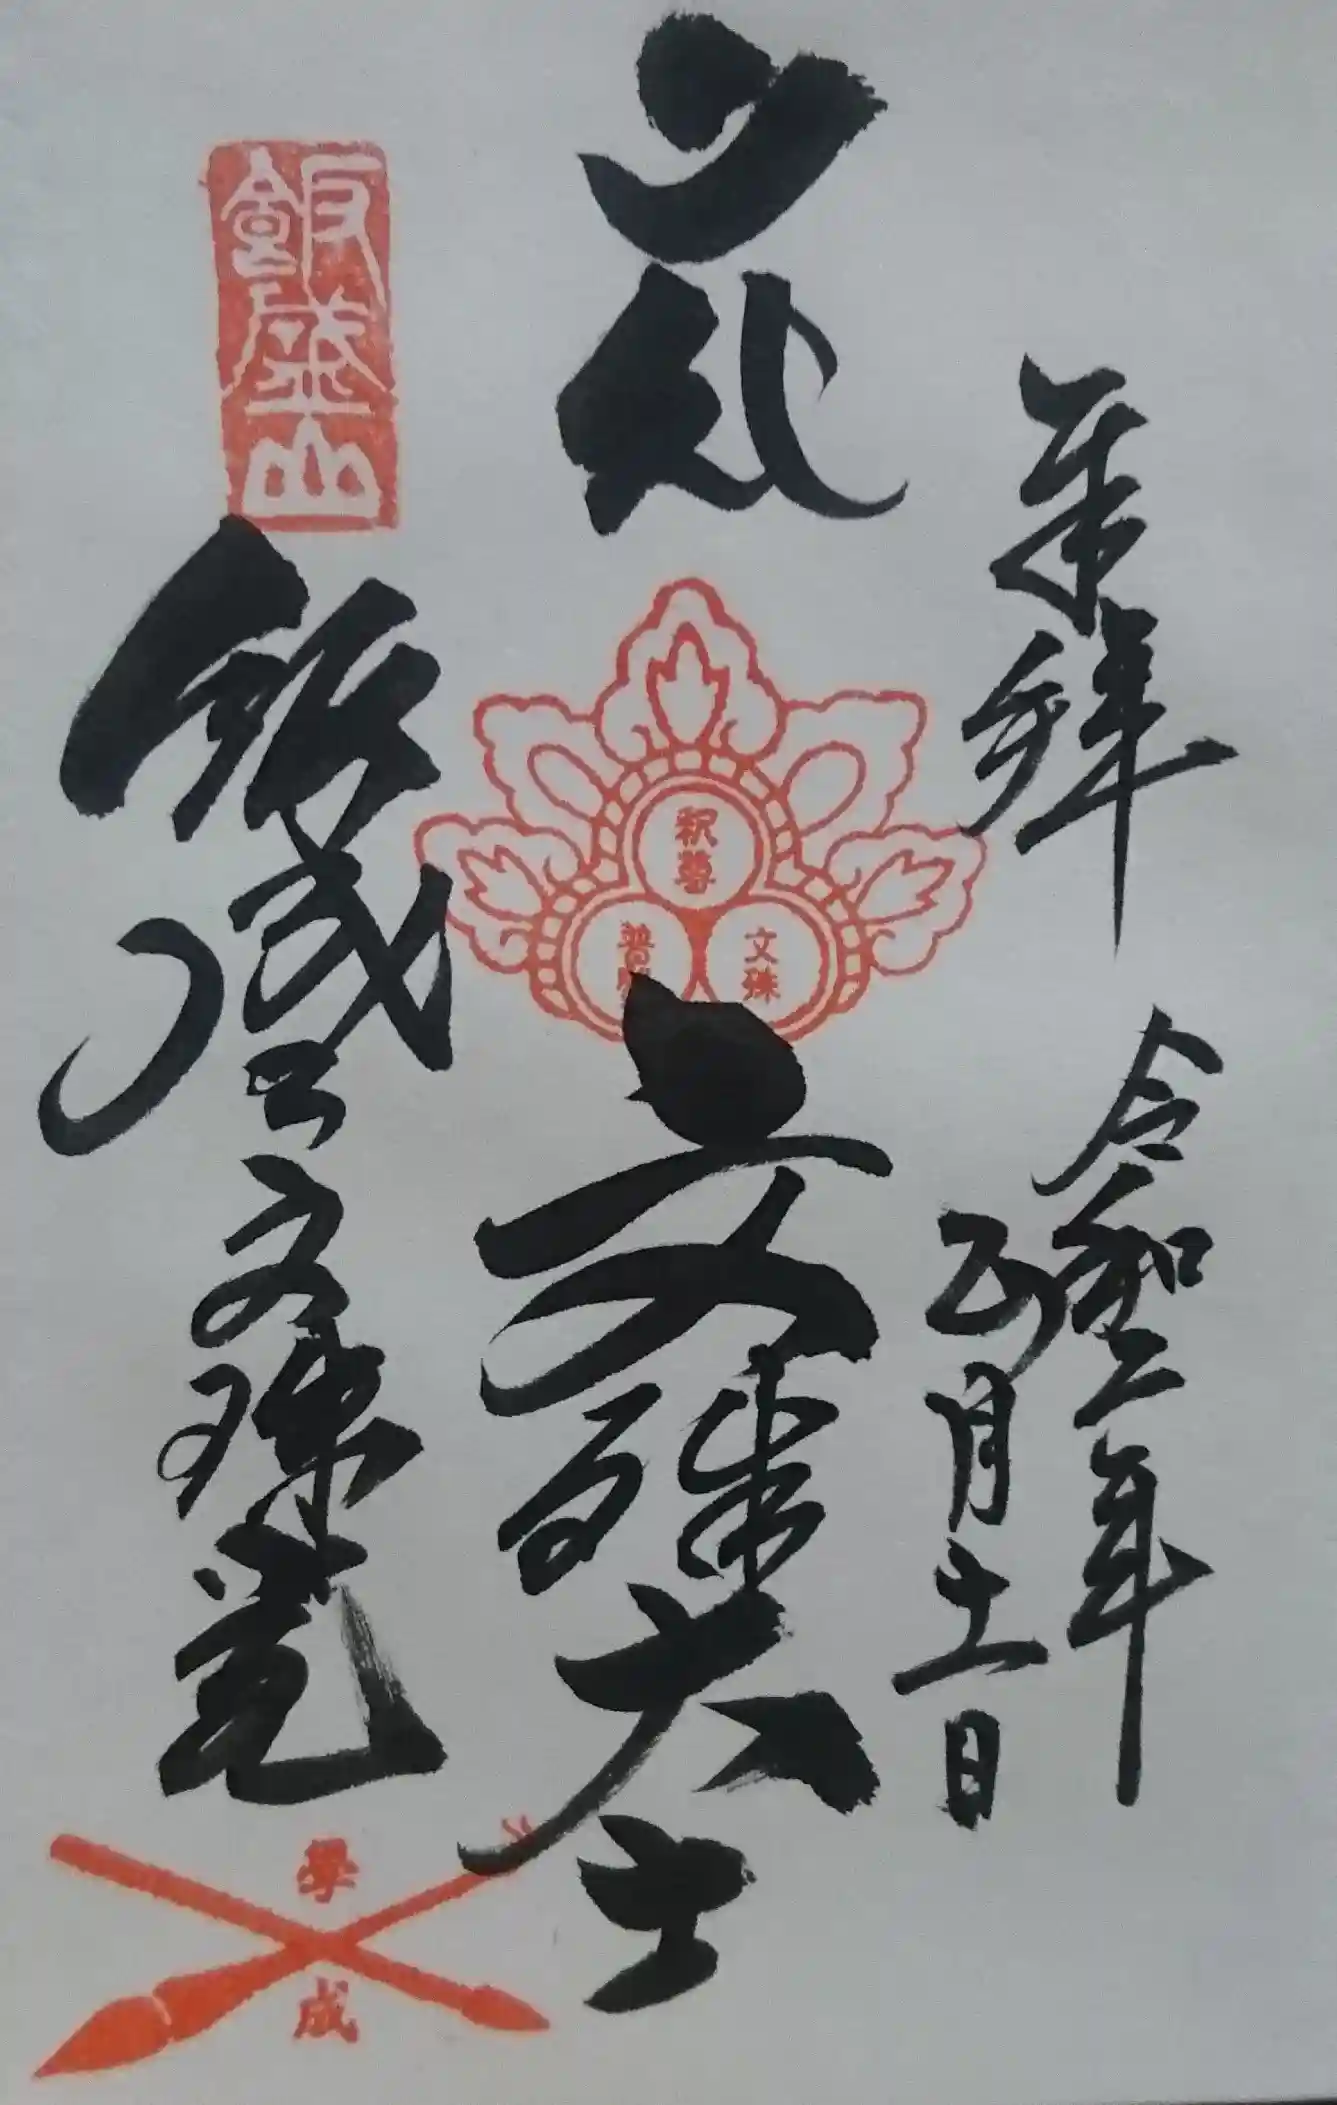 奉拝
令和三年
五月十一日
釈尊
文殊
普賢
文殊大士
飯盛山
飯盛山文殊堂
學
成